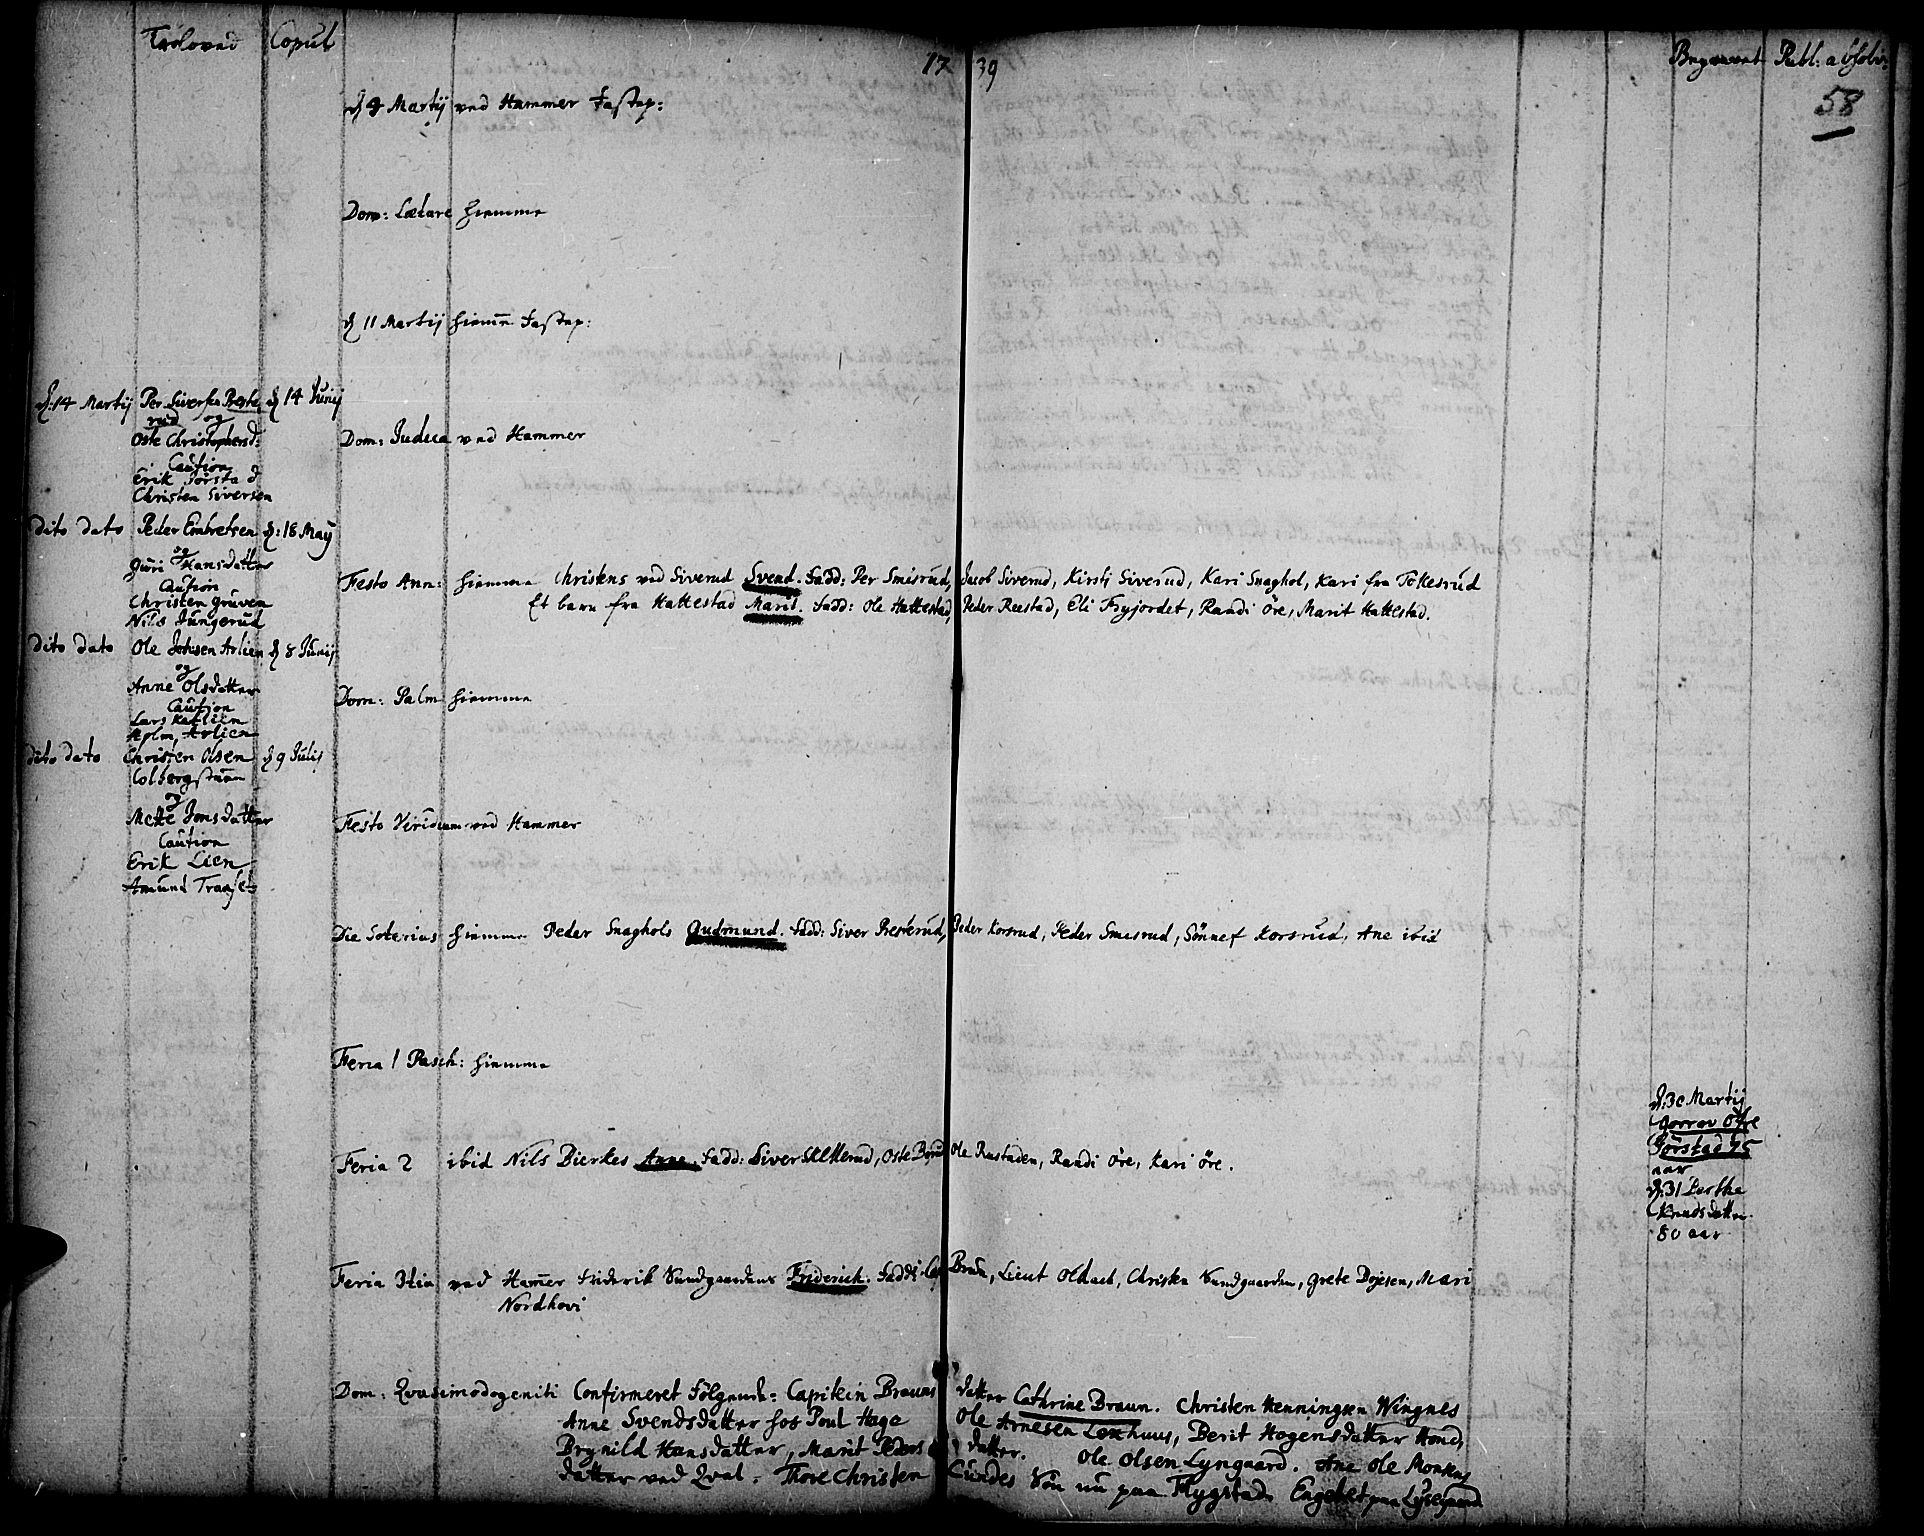 Troloved Copul
17 39
Begravet Publ: absolv:
58
d 4 Martij ved Hammer Fastep:
Dom: Lætare hiemme
d 11 Martij hiemme Fastep:
d: 14 Martij Per Siversen Preste d 14 Junij
rud og
Oste Christophersd:
Caution
Erik Jørstad
Christen Siversen
Dom: Judica ved Hammer
dito dato Peder Embretsen d: 18 May
og
Guri Hansdatter
Caution
Christen Gruven
Nils Jungerud
Festo Ann: hiemme Christens ved Siverud Svend. Fadd: Per Smisrud, Jacob Siverud, Kirsti Siverud, Kari Snaghol, Kari fra Tokesrud
Et barn fra Hattestad Marit. Fadd: Ole Hattestad, Peder Reestad, Eli Fryjordet, Randi Öre, Marit Hattestad.
dito dato Ole Johnsen Arlien d 8 Junij
og
Anne Olsdatter
Caution
Lars Katlien
Holm, Arlien
Dom: Palm hiemme
dito dato Christen Olsen d 9 Julij
Colbergstuen
og
Mette Jonsdatter
Caution
Erik Lien
Amund Traaset
Festo Viridium ved Hammer
Die Soterius hiemme Peder Snaghols Gudmund. Fadd: Siver Presterud, Peder Korsrud, Peder Smisrud, Sönnef Korsrud, Ane ibid
Feria 1 Pasch: hiemme
d: 30 Martij
Gorrov Öfre
Jörstad 75
aar
d: 31 Berthe
Knudsdatter
80 aar
Feria 2 ibid Nils Bierkes Anne. Fadd: Siver Skllerud, Oste Borud Ole Rustaden, Randi Öre, Kari Öre.
Feria 3tia ved Hamer Friderik Sundgaardens Friderich. Fadd: Cap Brun, Lieut Oldach, Christen Sundgaarden, Grete Dojesen, Mari
Nordhovi
Dom: Qvasimodogeniti Confirmeret Følgende: Capitein Brauns datter Cathrine Braun. Christen Henningsen Wingnes
Anne Svendsdatter hos Poul Hage Ole Arnesen Loxhuus, Berit Hogensdatter Hond,
Brynild Hansdatter, Marit Peders datter. Ole Olsen Lyngaard. Ane Ole Monsens
datter ved Qval. Thore Christen Lundes Sön nu paa Flygstad. Engebret paa Lysegaard